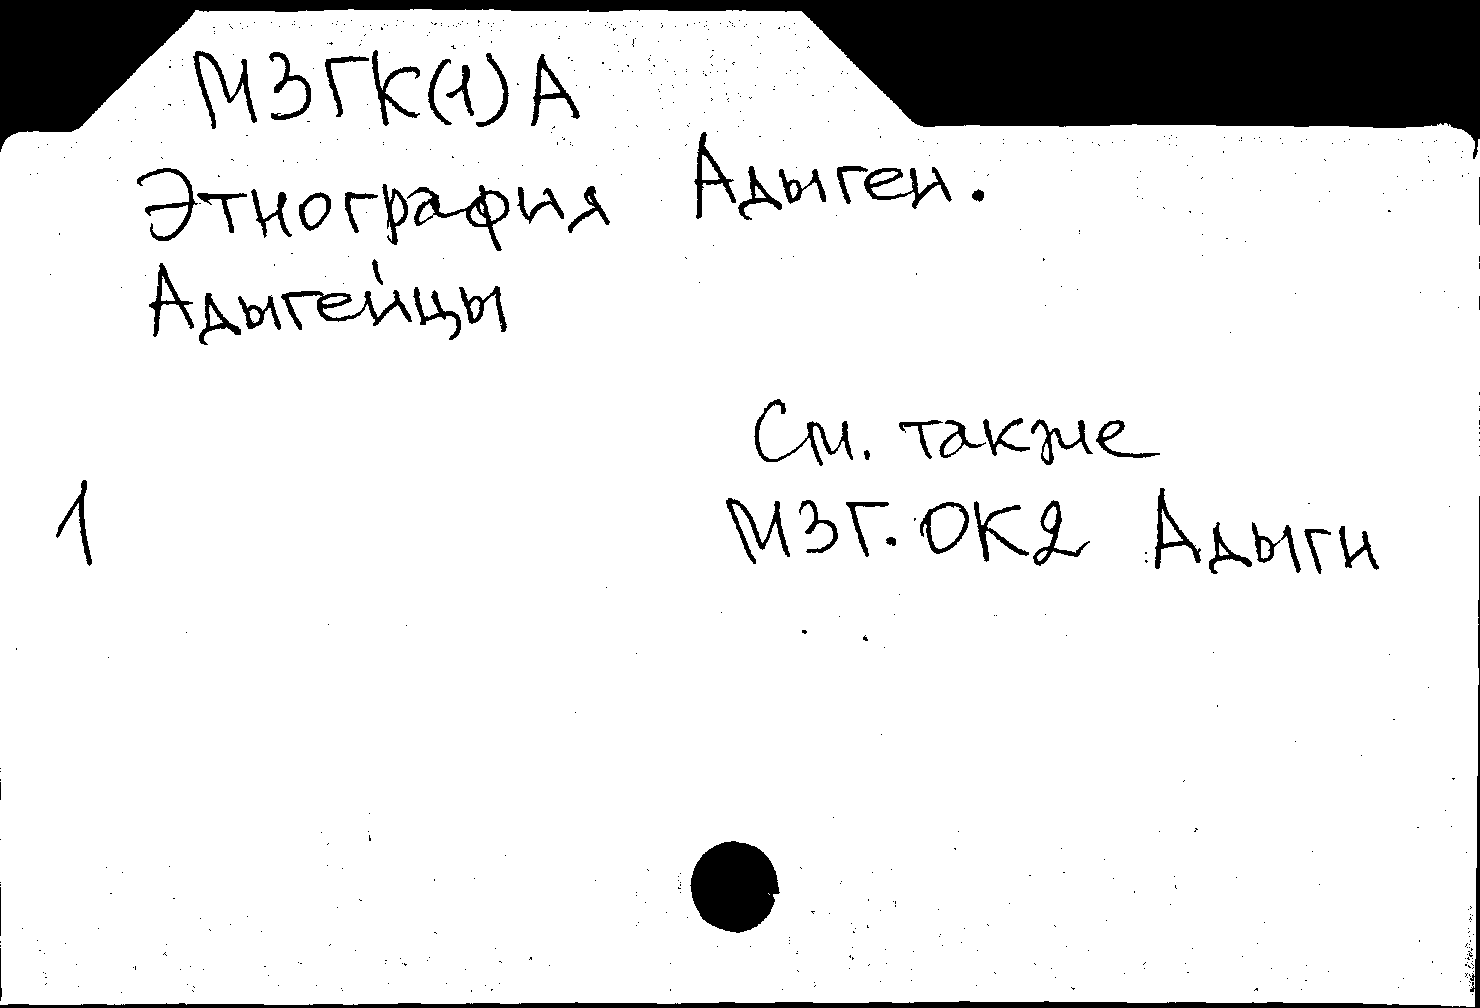 МЗГК(1)А
Этнография Адыгеи.
Адыгейцы
См. также
1 МЗГ.ОК2 Адыги